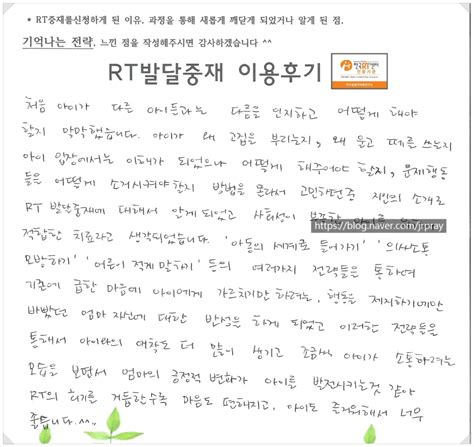 * RT중재를신청하게 된 이유, 과정을 통해 새롭게 깨닫게 되었거나 알게 된 점,
기억나는 전략, 느낀 점을 작성해주시면 감사하겠습니다 ^^
RT발달중재 이용후기
처음 아이가 다른 아이들과는 다름을 인지하고 어떻게 해야
할지 막막했습니다. 아이가 왜 고집을 부리는지, 왜 울고 떼를 쓰는지
아이 입장에서는 이해가 되었으나 어떻게 해주어야 할지, 문제행동
들은 어떻게 소거시켜야할지 방법을 몰라서 고민하던중 지인의 소개로
RT 발달중재에 대해서 알게 되었고 사회성이 부족한
https://blog.naver.com/jrpray
적합한 치료라고 생각되었습니다. '아동의 세계로 들어가기' '의사소통
모방하기' '어른이 적게 말하기' 등의 여러가지 전략들을 통하여
기존에 급한 마음에 아이에게 가르치기만 하려는, 행동을 제지하기에만
바빴던 엄마 자신에 대한 반성을 하게 되었고 이러한 전략들을
통해서 아이와의 애착도 더 많이 생기고 조금씩 아이가 소통하려는
모습을 보면서 엄마의 긍정적 변화가 아이를 발전시키는것 같아
RT의 회기를 거듭할수록 마음도 편해지고, 아이도 즐거워해서 너무
좋습니다.^^